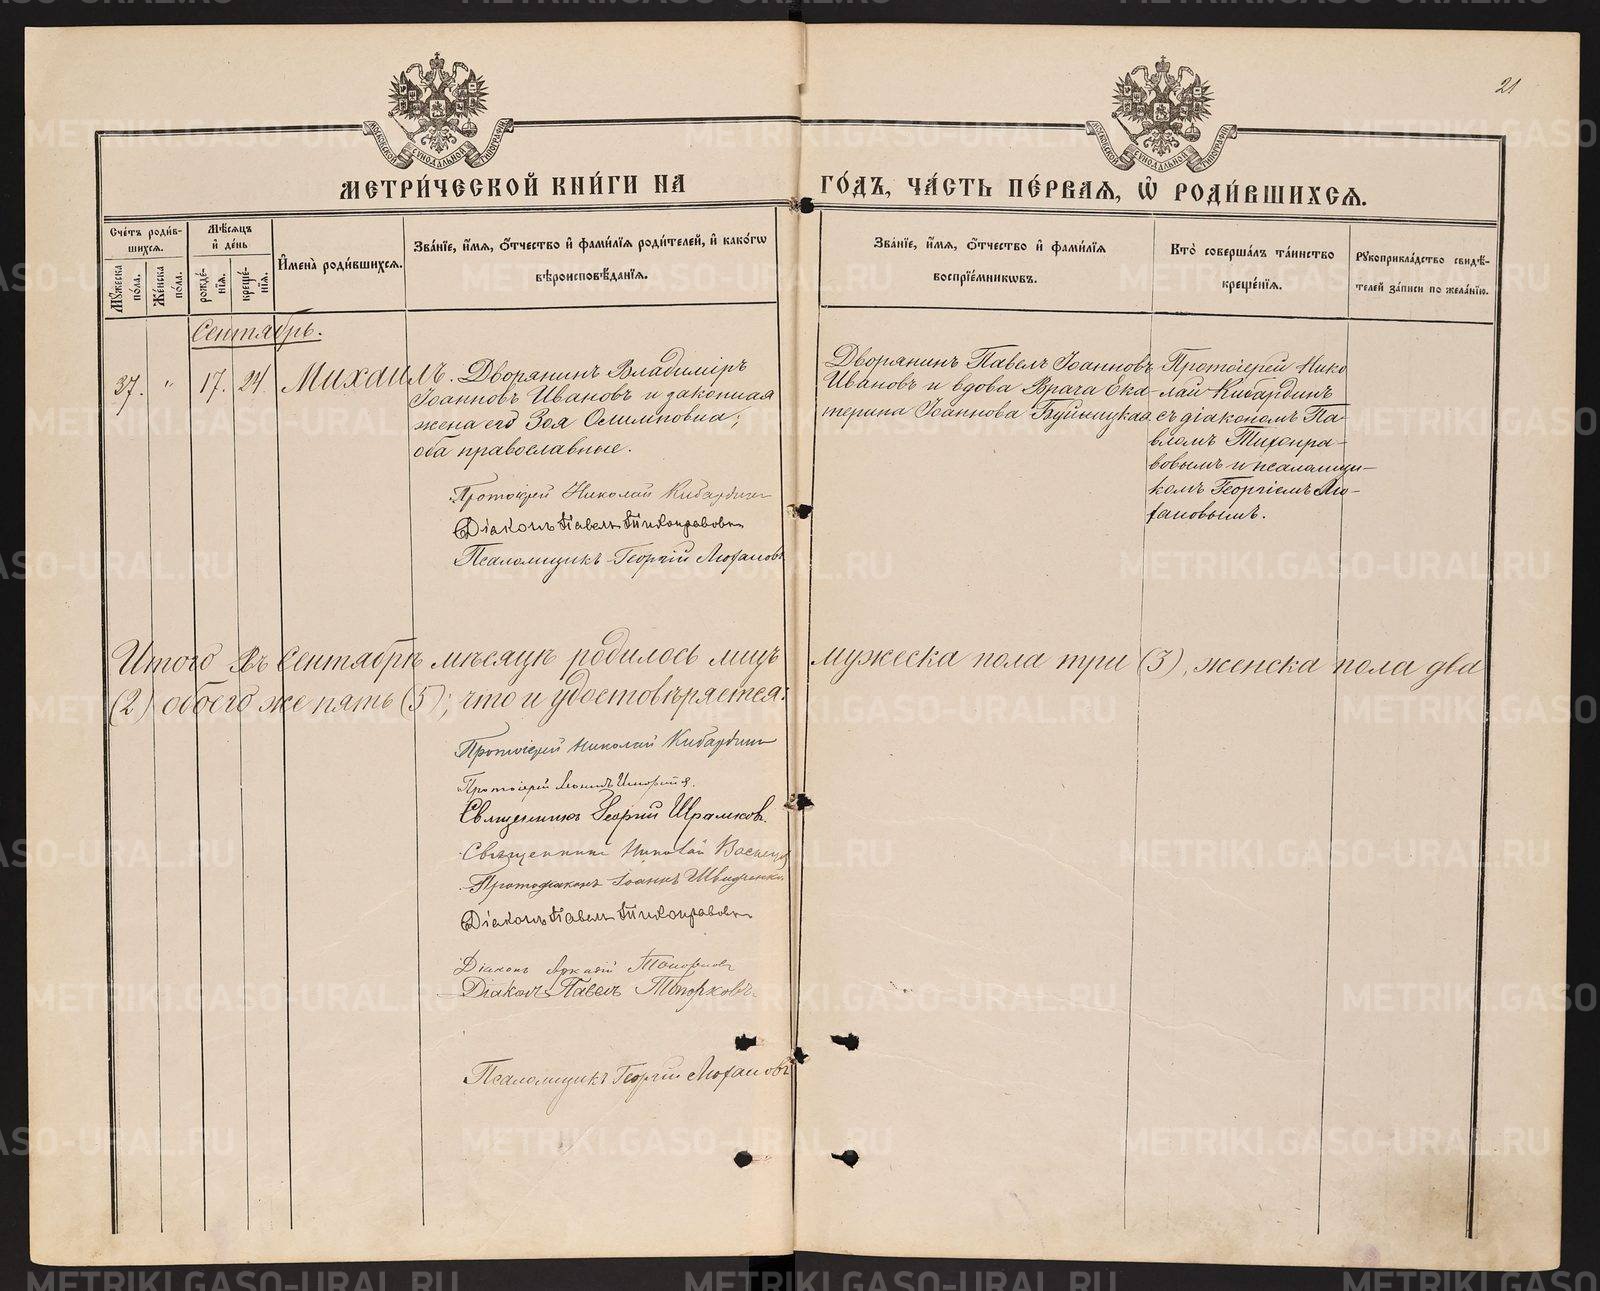 21
МОСКОВСКОЙ СѴНОДАЛЬНОЙ ТИПОГРАФІИ
МОСКОВСКОЙ СѴНОДАЛЬНОЙ ТИПОГРАФІИ
МЕТРИ́ЧЕСКОЙ КНИ́ГИ НА ГО́ДЪ, ЧА́СТЬ ПЕ́РВАѦ, Ѡ҆ РОДИ́ВШИХСѦ.
Сче́тъ роди́в-
шихсѧ.
Мꙋ́жеска по́ла.
Же́нска по́ла.
Мѣ́сѧцъ
и҆ де́нь
рожде́-
нїѧ.
креще́-
нїѧ.
И҆мена̀ роди́вшихсѧ.
Зва́нїе, и҆́мѧ, ѻ҆́тчество и҆ фами́лїѧ роди́телей, и҆ како́гѡ
вѣроисповѣ́данїѧ.
Зва́нїе, и҆́мѧ, ѻ҆́тчество и҆ фами́лїѧ
воспрїе́мникѡвъ.
Кто̀ соверша́лъ та́инство
креще́нїѧ.
Рꙋкоприкла́дство свидѣ́-
телей за́писи по жела́нїю.
Сентябрь.
37. " 17. 24. Михаилъ.
Дворянинъ Владиміръ
Іоанновъ Ивановъ и законная
жена его Зоя Олимповна;
оба православные.
Дворянинъ Павелъ Іоанновъ
Ивановъ и вдова врача Ека-
терина Іоаннова Буйницкая
Протоіерей Нико
лай Кибардинъ
съ діакономъ Па-
вломъ Тихонра-
вовымъ и псаломщи-
комъ Георгіемъ Лю-
хановымъ.
Протоіерей Николай Кибардинъ
Діаконъ Павелъ Тихонравовъ
Псаломщикъ Георгій Люхановъ
Итого въ Сентябрѣ мѣсяцѣ родилось лицъ мужеска пола три (3), женска пола два
(2) обоего же пять (5); что и удостовѣряется:
Протоіерей Николай Кибардинъ
Протоіерей
Священникъ Георгій Шрамковъ.
Священникъ Николай
Протодіаконъ Іоаннъ
Діаконъ Павелъ Тихонравовъ
Діаконъ Аркадій
Діаконъ Павелъ Топорковъ.
Псаломщикъ Георгій Люхановъ
METRIKI.GASO-URAL.RU